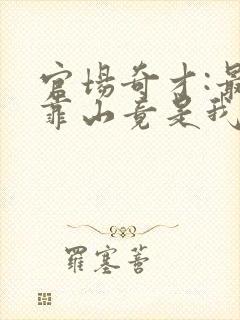 官场奇才:最
靠山竟是我
羅塞菩